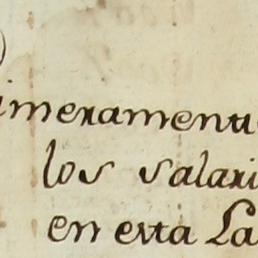 imeramente
los salari
en esta La